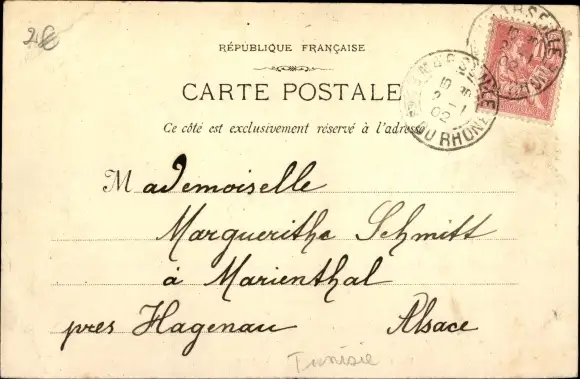 2€
RÉPUBLIQUE FRANÇAISE
CARTE POSTALE
Ce côté est exclusivement réservé à l'adresse
MARSEILLE
DU RHÔNE
02
Mademoiselle
Marguerithe Schmitt
à Marienthal
pres Hagenau Alsace
Tunisie